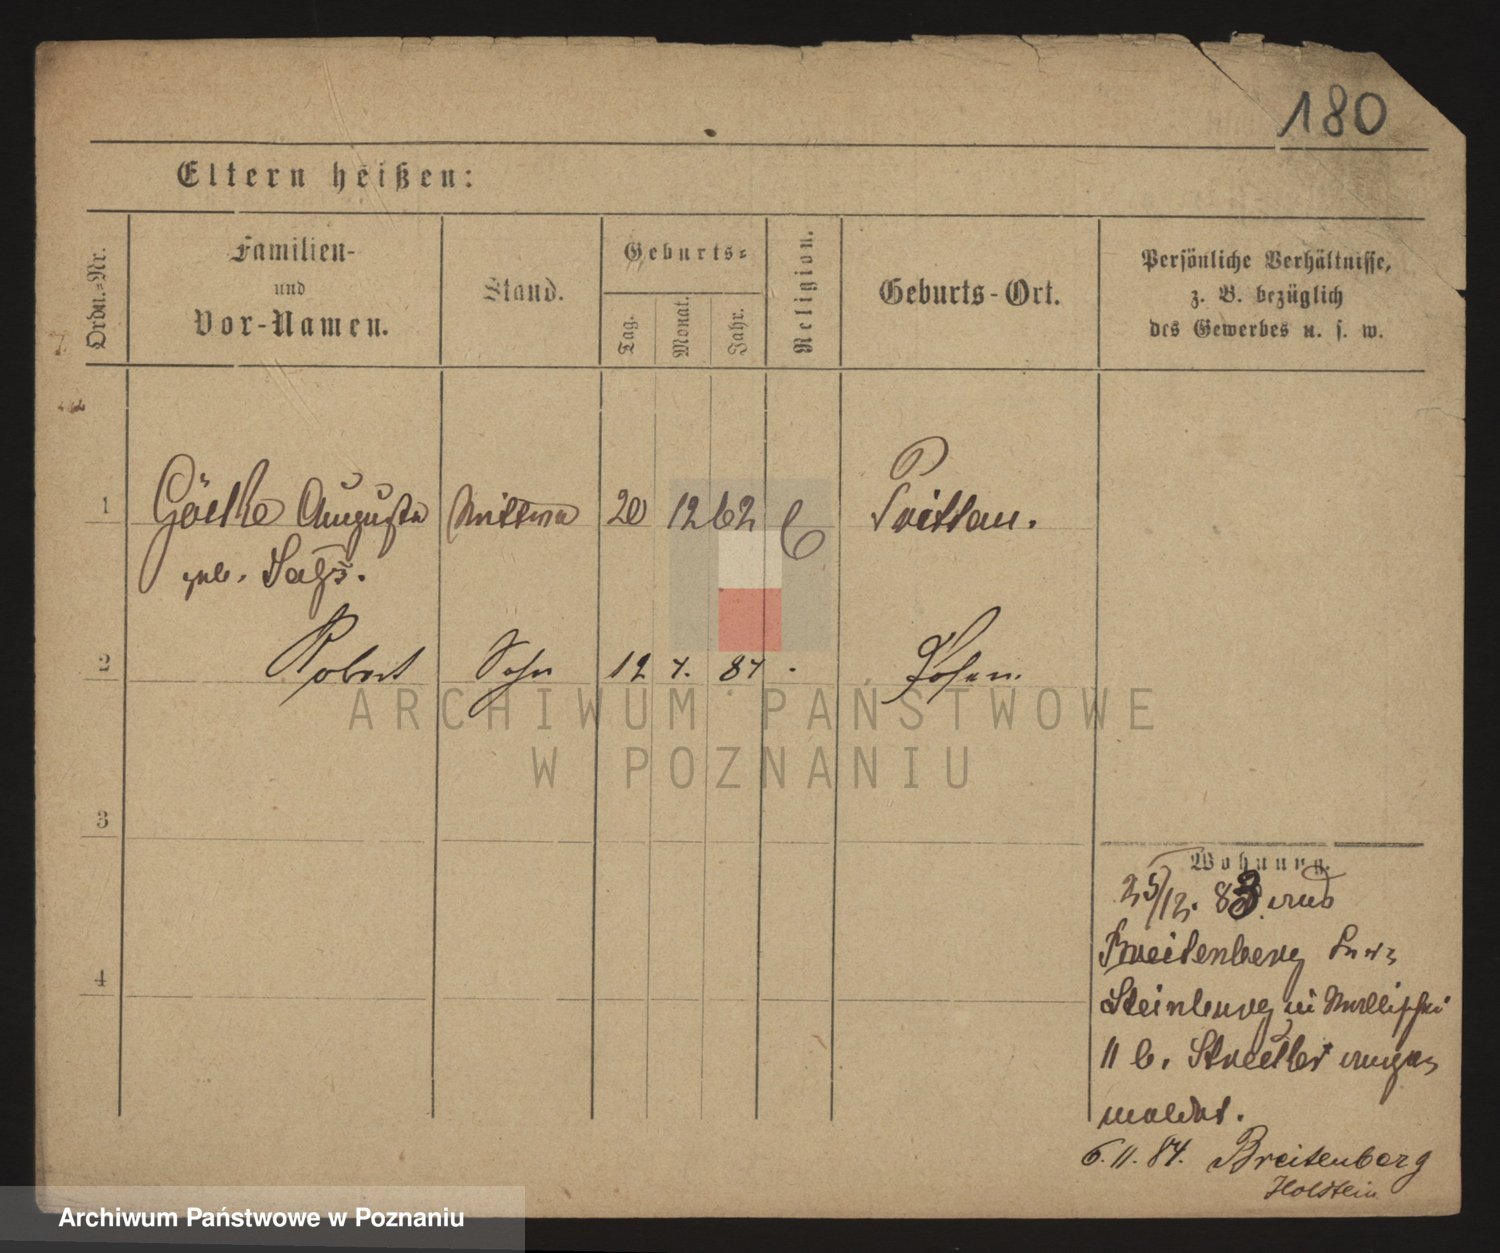 180
Eltern heißen:
Ordn.-Nr.
Familien-
und
Vor-Namen.
Stand.
Geburts-
Tag.
Monat.
Jahr.
Religion.
Geburts-Ort.
Persönliche Verhältnisse,
z. B. bezüglich
des Gewerbes u. s. w.
1 Göethe Auguste Wittwe 20 12 62 Prittau.
geb.
2 Robert Sohn 12 7. 84 Posen.
3
4
Wohnung.
25/12. 83 aus
Breitenberg Kreis
Steinburg in Wallischei
11 b. Streetler ange
meldet.
6.11.84. Breitenberg
Holstein
ARCHIWUM PAŃSTWOWE
W POZNANIU
Archiwum Państwowe w Poznaniu